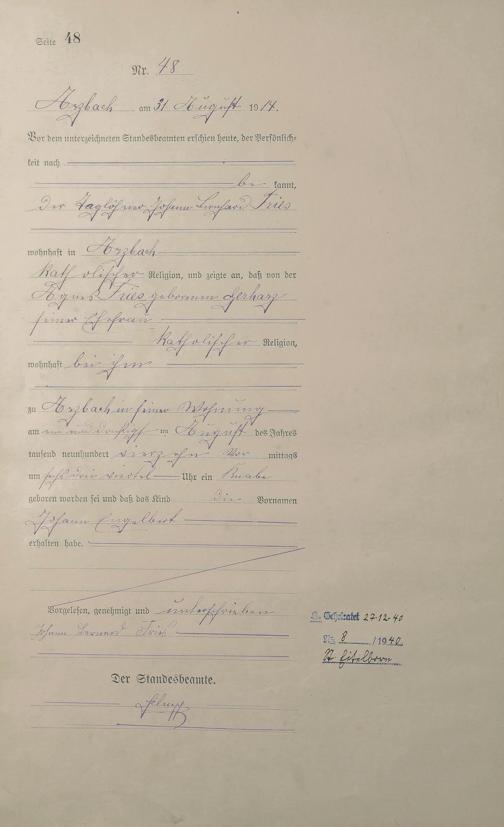 Seite 48
Nr. 48
Arzbach am 31 August 1914.
Vor dem unterzeichneten Standesbeamten erschien heute, der Persönlich-
keit nach
be kannt,
der Taglöhner Johann Bernhard Fries
wohnhaft in Arzbach
kath olischer Religion, und zeigte an, daß von der
Agnes Fries geborenen Gerharz
seiner Ehefrau
katholischer Religion,
wohnhaft bei ihm
zu Arzbach in seiner Wohnung
am ein und dreißigst en August des Jahres
tausend neunhundert vierzehn Vor mittags
um drei viertel Uhr ein Knabe
geboren worden sei und daß das Kind die Vornamen
Johann Engelbert
erhalten habe.
Vorgelesen, genehmigt und unterschrieben
Johann Bernard Fries
Der Standesbeamte.
Geheiratet 27.12.40
Nr. 8 /1940
St Eitelborn